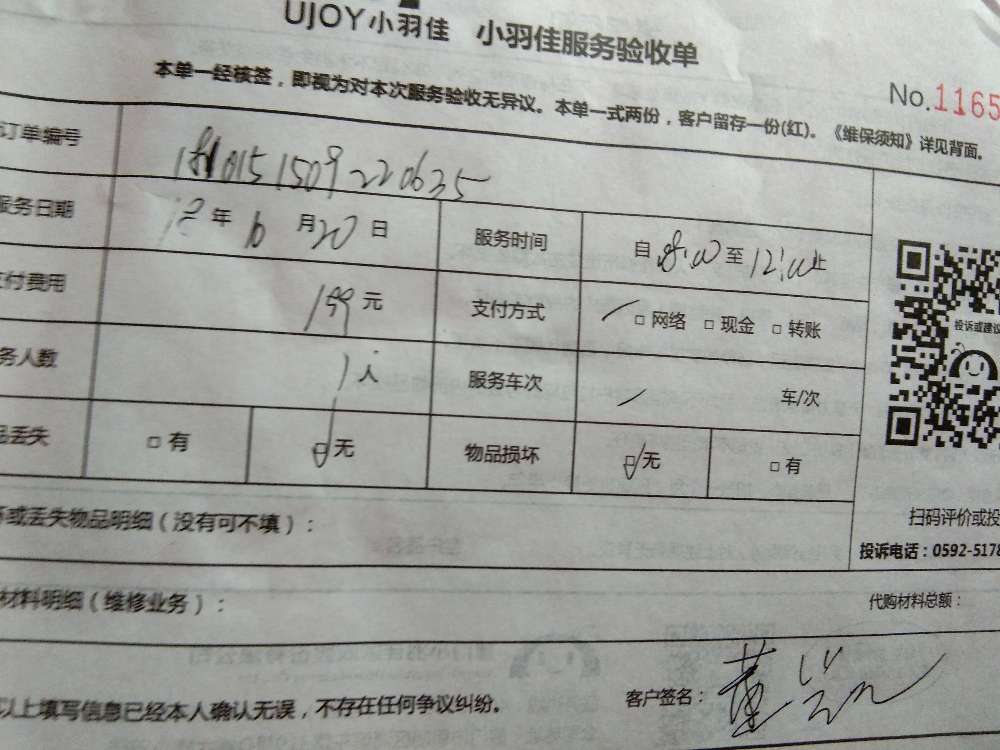 UJOY小羽佳 小羽佳服务验收单
No.1165
本单一经核签，即视为对本次服务验收无异议。本单一式两份，客户留存一份(红)。《维保须知》详见背面。
订单编号
服务日期 年 月20日 服务时间 自8:00至12:00止
付费用 199元 支付方式 □网络 □现金 □转账
务人数 1人 服务车次 车/次
品丢失 □有 □无 物品损坏 □无 □有
投诉或建议
扫码评价或投
坏或丢失物品明细（没有可不填）：
投诉电话：0592-5178
材料明细（维修业务）： 代购材料总额：
以上填写信息已经本人确认无误，不存在任何争议纠纷。 客户签名：